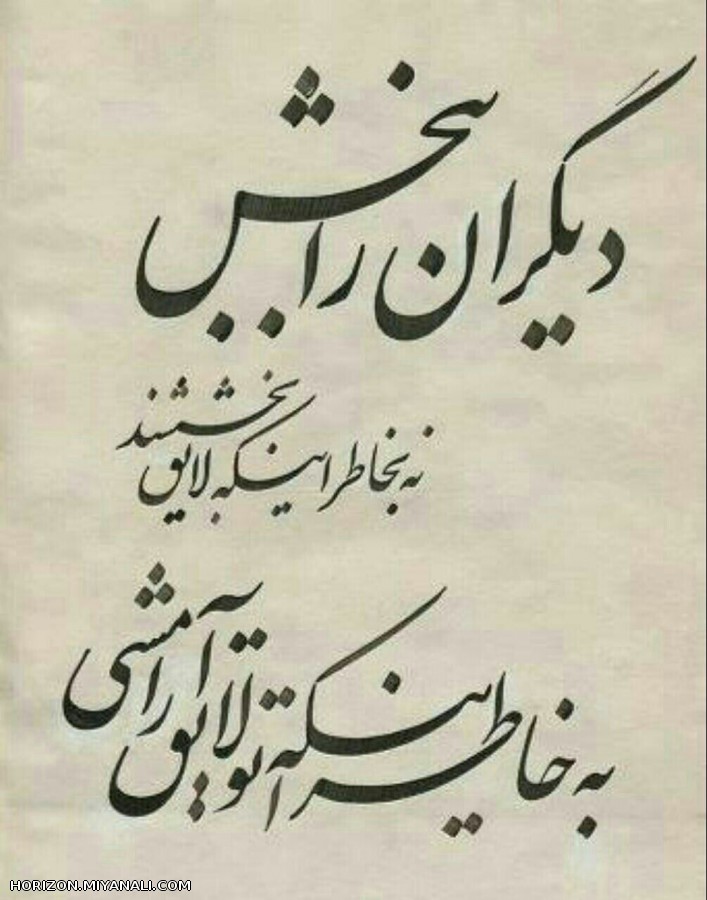 دیگران را ببخش
نه بخاطر اینکه لایق بخششند
به خاطر اینکه تو لایق آرامشی
HORIZON.MIYANALI.COM